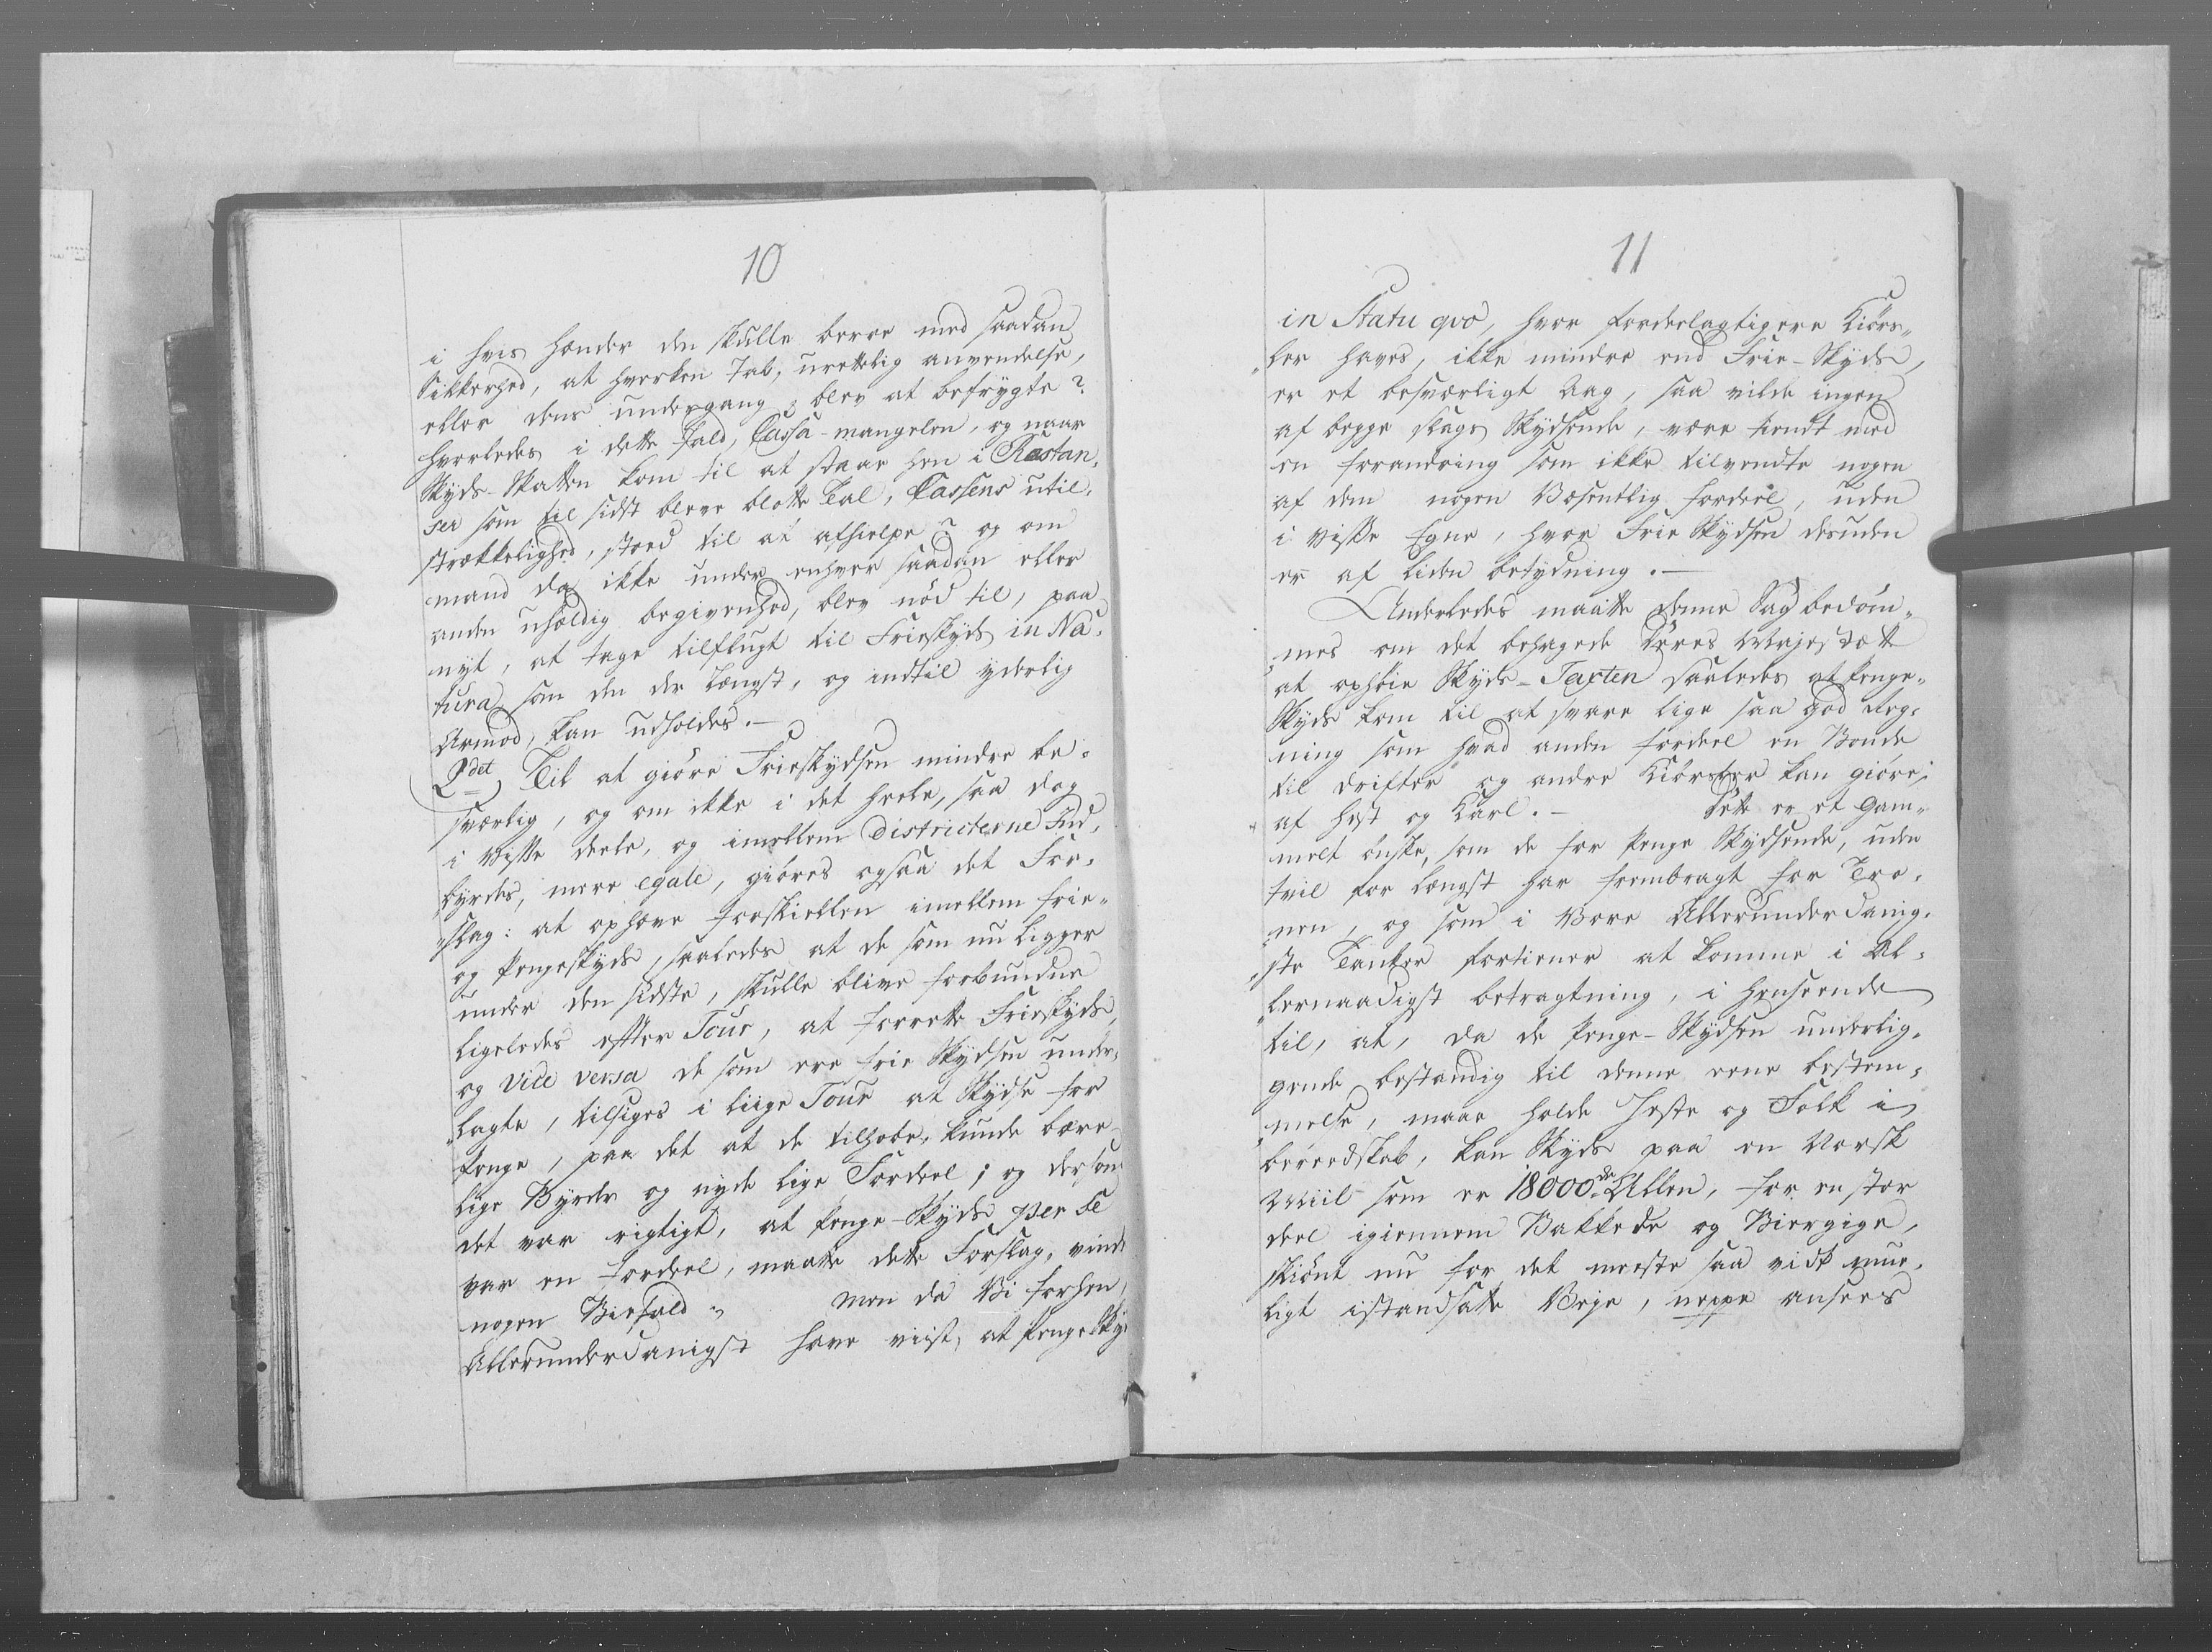 10
i hvis hænder den skulle beroe med saadan
Sikkerhed, at hverken Tab, urettelig anvendelse,
eller dens undergang, blev at befrygte?
hvorledes i dette fald, Cassa-mangelen, og naar
Skyds-Skatten kom til at staae hen i Restan-
ser som til sidst bleve blotte Tal, Cassens util-
strækkelighed, stoed til at afhielpe? og om
mand da ikke under enhver saadan eller
anden uheldig begivenhed, blev nød til, paa
nyt, at tage tilflugt til Frieskyds in Na-
tura, som den der længst, og indtil yderlig
Armod, kan udholdes.-
2det) Til at giöre Frieskydsen mindre be-
sværlig, og om ikke i det heele, saa dog
i visse deele, og imellem Districterne ind-
byrdes, mere egale, giöres ogsaa det For-
slag: at ophæve forskiellen imellem frie-
og Pengeskyds, saaledes at de som nu ligger
under den sidste, skulle blive forbundne
ligeledes efter Tour, at forrette Frieskyds,
og vice versa de som ere frie Skydsen under-
lagte, tilsiges i liige Tour at Skydse for
Penge, paa det at de tilhobe, kunde bære
lige Byrde og nyde lige Fordeel; og dersom
det var rigtigt, at Penge-Skyds per se
var en fordeel, maatte dette Forslag, vinde
nogen Biefald. men da Vi forhen,
Allerunderdanigst have viist, at Penge Sky
11
in Statu qvo, hvor fordeelagtigere Kiörs-
ler haves, ikke mindre end Frie-Skyds,
er et besværligt Aag, saa vilde ingen
af begge slags Skydsende, være tient med
en forandring som ikke tilvendte nogen
af dem nogen Væsentlig fordeel, uden
i visse Egne, hvor Frie Skydsen desuden
er af liden betydning.-
Anderledes maatte denne Sag bedöm-
mes om det behagede Deres Majestæt
at ophöie Skyds-Taxten saaledes at Penge-
Skyds kom til at svare lige saa god Reg-
ning som hvad anden fordeel en Bonde
til drifter og andre Kiörsler kan giöre,
af hest og Karl.- Dette er et gam-
melt önske, som de for Penge Skydsende, uden
tvil for længst har frembragt for Tro-
nen, og som i Vore Allerunderdanig-
ste Tanker fortiener at komme i Al-
lernaadigst betragtning, i henseende
til, at, da de Penge-Skydsen underlig-
gende bestandig til denne eene bestem-
melse, maae holde Heste og Folk i
beredskab, kan Skyds paa en Norsk
Miil som er 18000de Allen, for en stor
deel igiennem Bakkede og Biergige,
skiönt nu for det meeste saa vidt mue-
ligt istandsatte Veye, neppe ansees